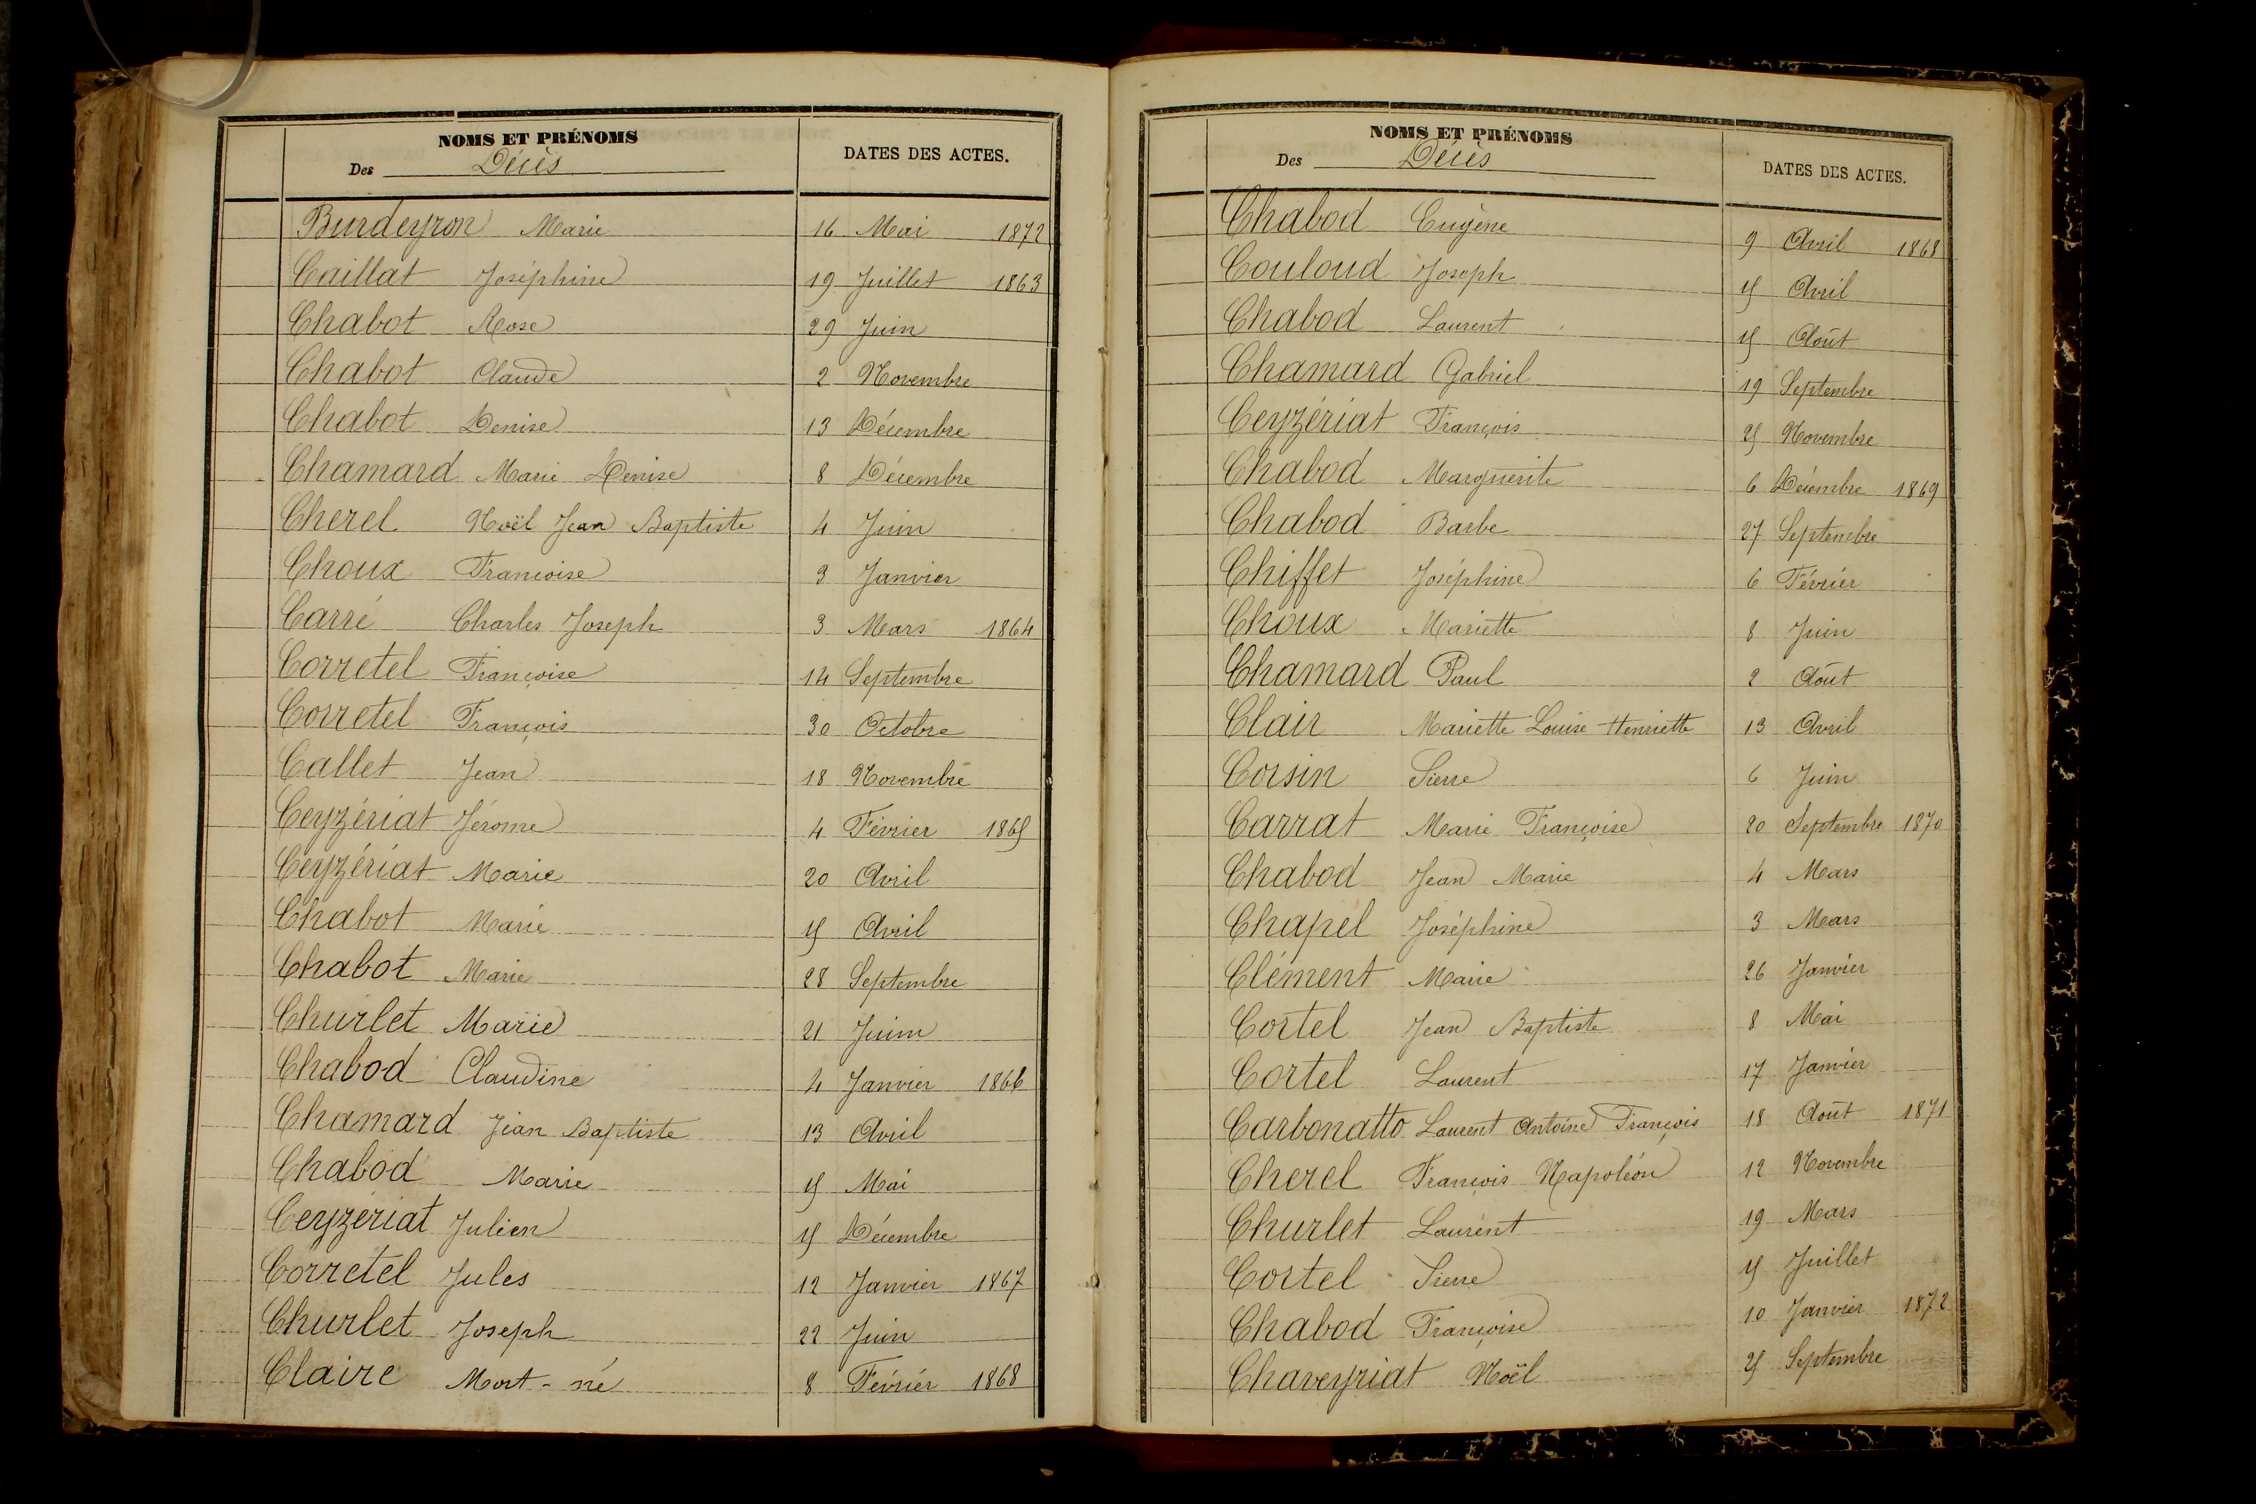 NOMS ET PRÉNOMS
Des Décès
DATES DES ACTES.
Burdeyron Marie 16 Mai 1872
Caillat Joséphine 19 Juillet 1863
Chabot Rose 29 Juin
Chabot Claude 2 Novembre
Chabot Denise 13 Décembre
Chamard Marie Denise 8 Décembre
Cherel Noël Jean Baptiste 4 Juin
Choux Francoise 3 Janvier
Carré Charles Joseph 3 Mars 1864
Corretel Françoise 14 Septembre
Corretel François 30 Octobre
Callet Jean 18 Novembre
Ceyzériat Jérome 4 Février 1865
Ceyzériat Marie 20 Avril
Chabot Marie 5 Avril
Chabot Marie 28 Septembre
Churlet Marie 21 Juin
Chabod Claudine 4 Janvier 1866
Chamard Jean Baptiste 13 Avril
Chabod Marie 5 Mai
Ceyzériat Julien 5 Décembre
Corretel Jules 12 Janvier 1867
Churlet Joseph 22 Juin
Claire Mort-né 8 Février 1868
NOMS ET PRÉNOMS
Des Décès
DATES DES ACTES.
Chabod Eugène 9 Avril 1868
Couloud Joseph 5 Avril
Chabod Laurent 5 Août
Chamard Gabriel 19 Septembre
Ceyzériat François 25 Novembre
Chabod Marguerite 6 Décembre 1869
Chabod Barbe 27 Septembre
Chiffet Joséphine 6 Février
Choux Mariette 8 Juin
Chamard Paul 2 Août
Clair Mariette Louise Henriette 13 Avril
Corsin Pierre 6 Juin
Carrat Marie Françoise 20 Septembre 1870
Chabod Jean Marie 4 Mars
Chapel Joséphine 3 Mars
Clément Marie 26 Janvier
Cortel Jean Baptiste 8 Mai
Cortel Laurent 17 Janvier
Carbonatto Laurent Antoine François 18 Août 1871
Cherel François Napoléon 12 Novembre
Churlet Laurent 19 Mars
Cortel Pierre 5 Juillet
Chabod Françoise 10 Janvier 1872
Chaveyriat Noël 25 Septembre